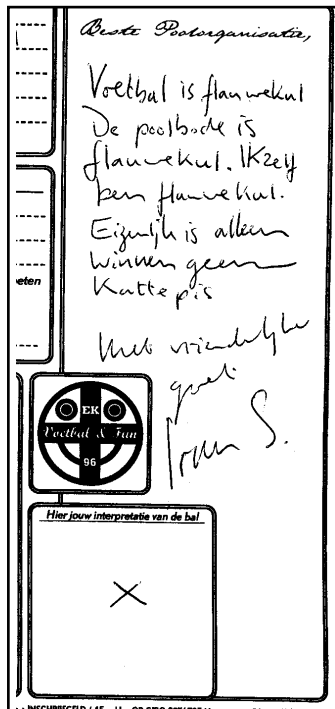 Beste Poolorganisatie,
Voetbal is flauwekul
De poolbode is
flauwekul. IKzelf
ben flauwekul.
Eigenlijk is alleen
winnen geen
Kattepis
Met vriendelijke
groet
S.
eten
EK
Voetbal & Fun
96
Hier jouw interpretatie van de bal
X